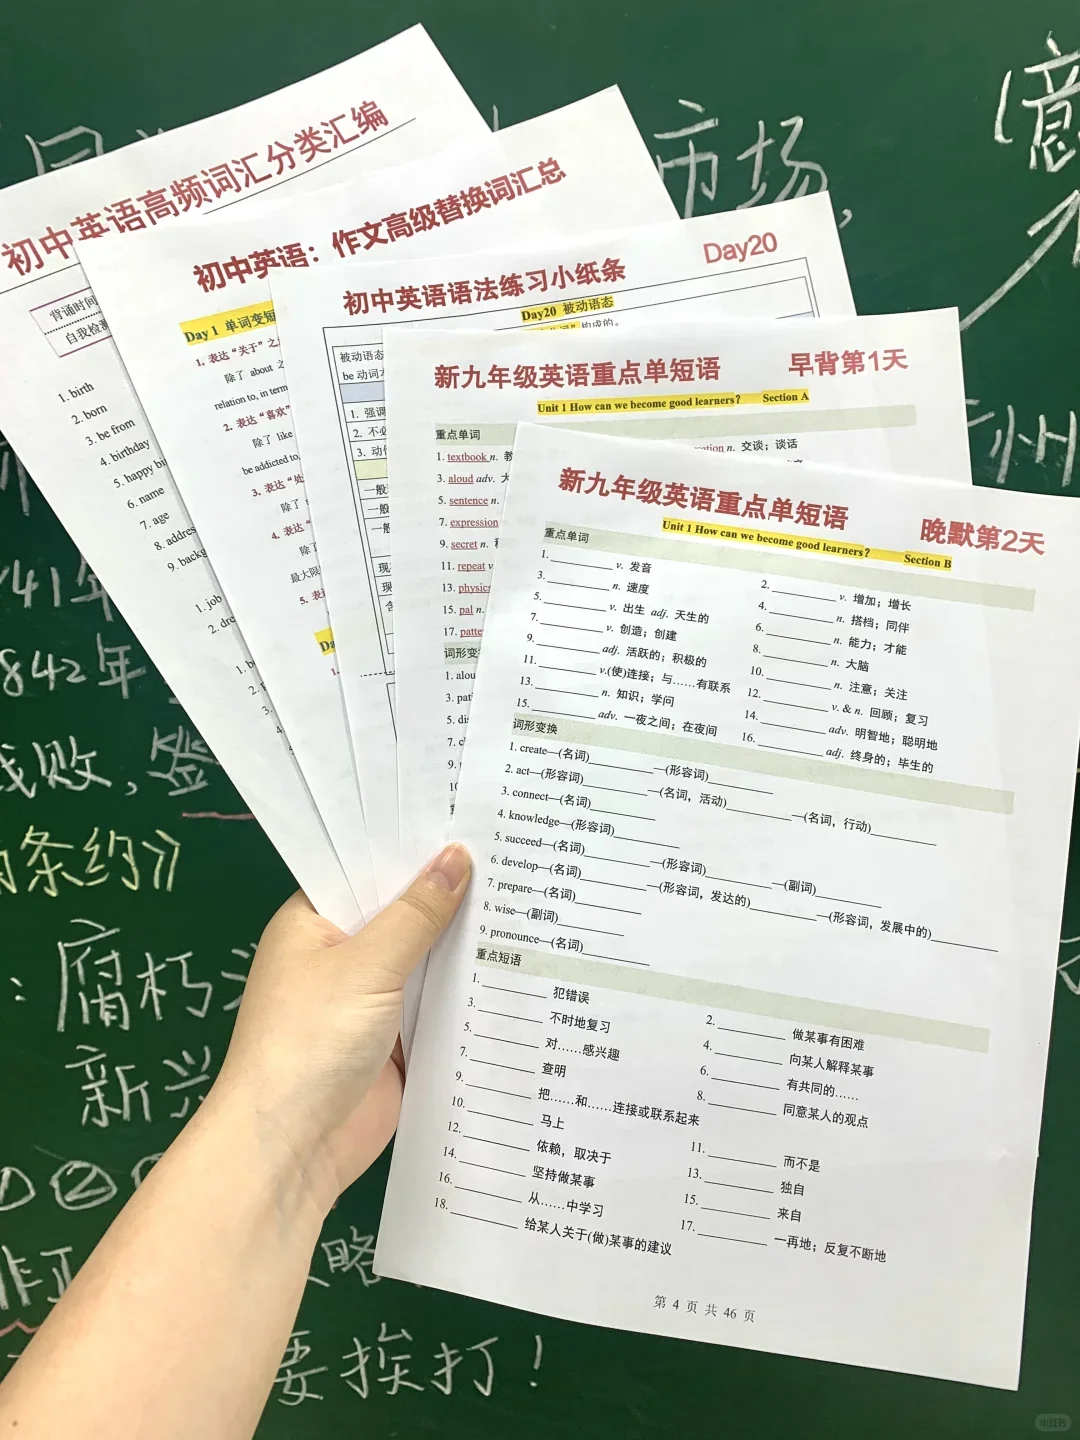 初中英语高频词汇分类汇编
背诵时间
自我检测
1. birth
2. born
3. be from
4. birthday
5. happy bi
6. name
7. age
8. addres
9. backg
1. job
2. dre
初中英语：作文高级替换词汇总
Day 1 单词变短
1. 表达“关于”之
除了 about 之
relation to, in term
2. 表达“喜欢”
除了 like
be addicted to,
3. 表达“处
除了
4. 表达“
除了
最大限
5. 表达
初中英语语法练习小纸条
Day20
Day20 被动语态
构成的。
被动语态
be 动词
1. 强调
2. 不必
3. 动作
一般
一般
一般
现
现
含
新九年级英语重点单短语
早背第1天
Unit 1 How can we become good learners? Section A
重点单词
1. textbook n. 教
n. 交谈；谈话
3. aloud adv. 大
5. sentence n.
7. expression
9. secret n. 秘
11. repeat v
13. physics
15. pal n.
17. patte
词形变
1. alou
3. pati
5. dis
7. cl
9.
10
新九年级英语重点单短语
晚默第2天
Unit 1 How can we become good learners? Section B
重点单词
1. ________ v. 发音
2. ________ v. 增加；增长
3. ________ n. 速度
4. ________ n. 搭档；同伴
5. ________ v. 出生 adj. 天生的
6. ________ n. 能力；才能
7. ________ v. 创造；创建
8. ________ n. 大脑
9. ________ adj. 活跃的；积极的
10. ________ n. 注意；关注
11. ________ v.(使)连接；与……有联系
12. ________ v. & n. 回顾；复习
13. ________ n. 知识；学问
14. ________ adv. 明智地；聪明地
15. ________ adv. 一夜之间；在夜间
16. ________ adj. 终身的；毕生的
词形变换
1. create—(名词)________—(形容词)________
2. act—(形容词)________—(名词，活动)________—(名词，行动)________
3. connect—(名词)________
4. knowledge—(形容词)________
5. succeed—(名词)________—(形容词)________—(副词)________
6. develop—(名词)________—(形容词，发达的)________—(形容词，发展中的)________
7. prepare—(名词)________
8. wise—(副词)________
9. pronounce—(名词)________
重点短语
1. ________ 犯错误
2. ________ 做某事有困难
3. ________ 不时地复习
4. ________ 向某人解释某事
5. ________ 对……感兴趣
6. ________ 有共同的……
7. ________ 查明
8. ________ 同意某人的观点
9. ________ 把……和……连接或联系起来
10. ________ 马上
11. ________ 而不是
12. ________ 依赖，取决于
13. ________ 独自
14. ________ 坚持做某事
15. ________ 来自
16. ________ 从……中学习
17. ________ 一再地；反复不断地
18. ________ 给某人关于(做)某事的建议
第 4 页 共 46 页
市场，
(意
41年
842年
战败，签
条约》
：腐朽
新兴
① ②
非正
略
要挨打！
小红书